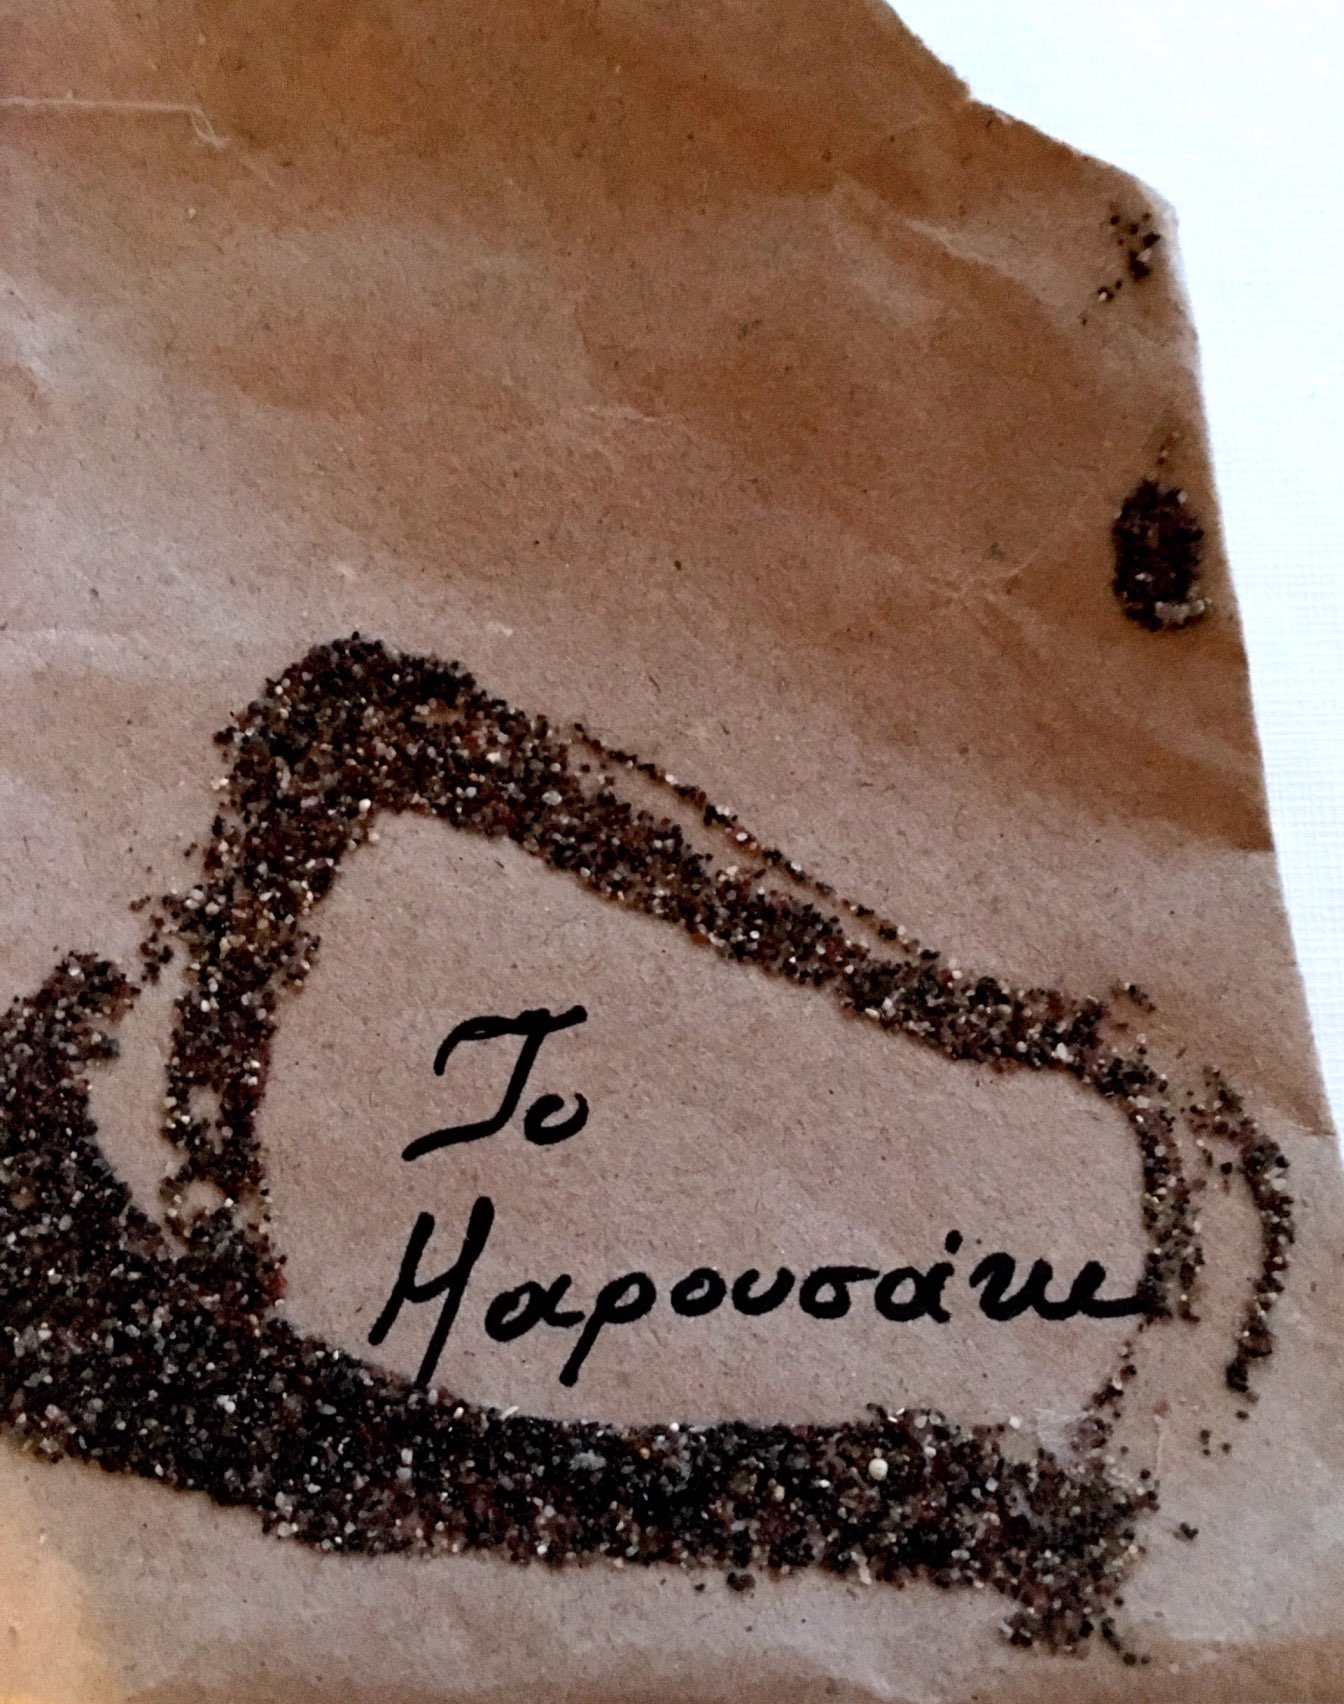 Το
Μαρουσάκι